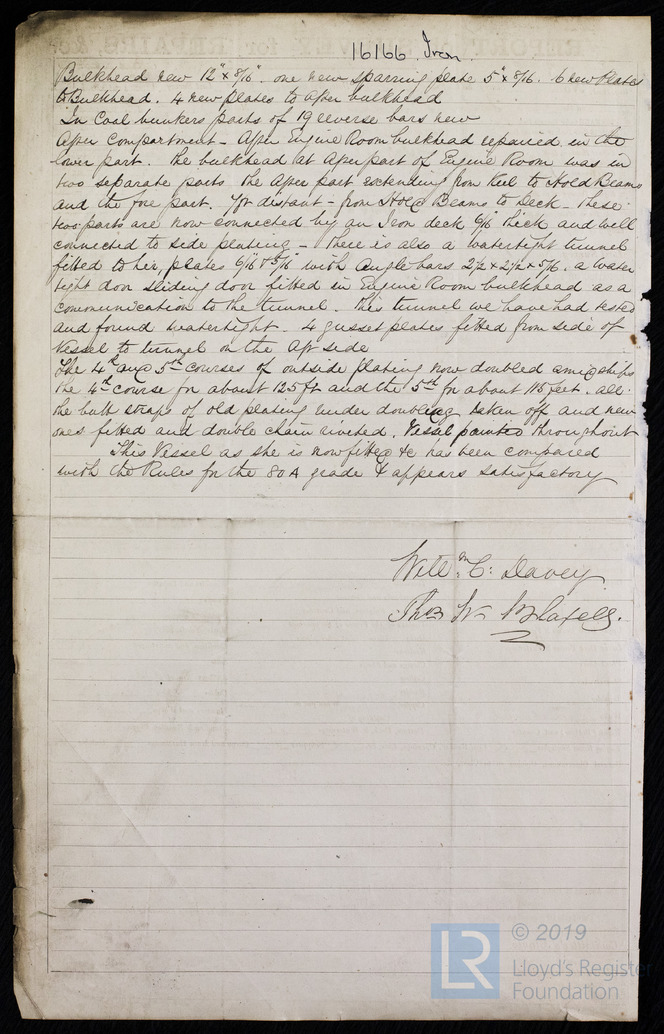 16166 Iron
Bulkhead new 12" x 8/16". one new sparring plate 5" x 8/16. 6 new Plates
to Bulkhead. 4 new plates to after bulkhead
In Coal bunkers parts of 19 reverse bars new
After Compartment - After Engine Room bulkhead repaired in the
lower part. The bulkhead at After part of Engine Room was in
two separate parts the After part extending from Keel to Hold Beams
and the fore part. distant - from Hold Beams to Deck - these
two parts are now connected by an Iron deck 6/16 thick and well
connected to side plating - There is also a watertight tunnel
fitted to her, plates 6/16 & 5/16 with Angle bars 2 1/2 x 2 1/2 x 5/16. a water
tight door sliding door fitted in Engine Room bulkhead as a
communication to the tunnel. This tunnel we have had tested
and found watertight. 4 gusset plates fitted from side of
Vessel to tunnel on the Aft side
The 4th and 5th courses of outside plating now doubled amidships
the 4th course for about 125 ft and the 5th for about 115 feet. all
the butt straps of old plating under doubling taken off and new
ones fitted and double chain riveted. Vessel painted throughout
This Vessel as she is now fitted &c has been compared
with the Rules for the 80 A grade & appears satisfactory
Willm. C. Davey
Thos W Blaxell.
© 2019
LR
Lloyd's Register
Foundation